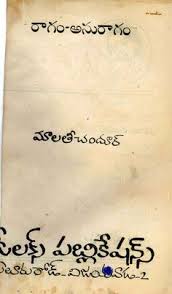 రాగం-అనురాగం
మాలతీచందూర్
పబ్లికేషన్స్
విజయవాడ-2